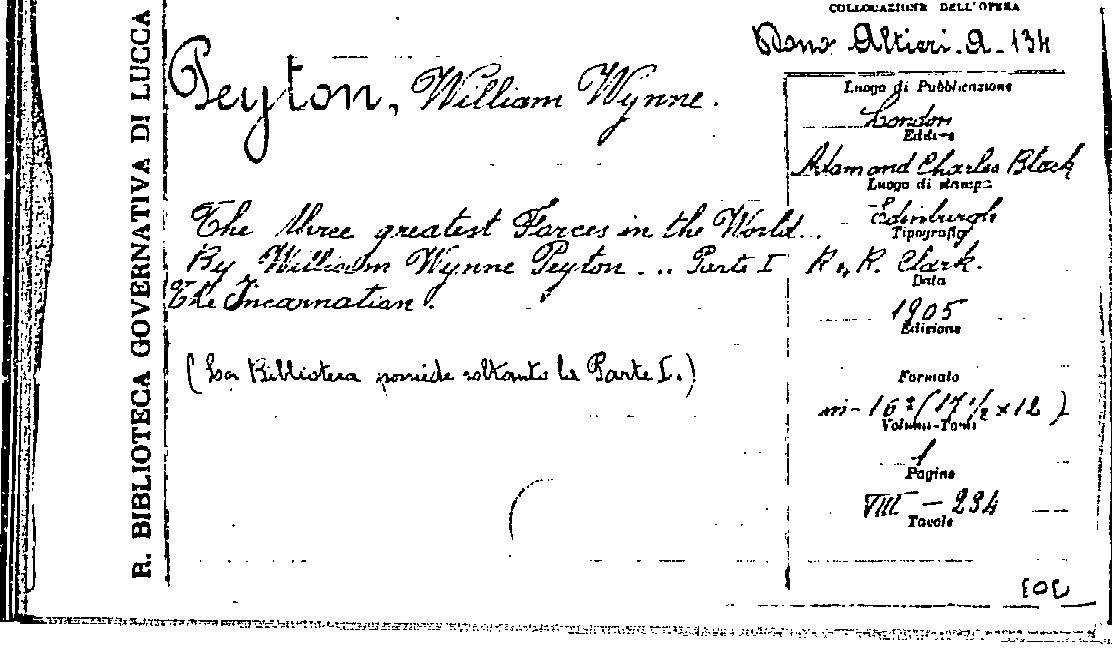 R. BIBLIOTECA GOVERNATIVA DI LUCCA
COLLOCAZIONE DELL'OPERA
Dono Altieri. A. 134
Peyton, William Wynne.
The three greatest Forces in the World...
By William Wynne Peyton ... Parte I
The Incarnation.
(La Biblioteca possiede soltanto la Parte I.)
Luogo di Pubblicazione
London
Editore
Adam and Charles Black
Luogo di stampa
Edinburgh
Tipografia
R. & R. Clark.
Data
1905
Edizione
Formato
in-16° (17 1/2 x 12)
Volumi-Tomi
1
Pagine
VIII - 234
Tavole